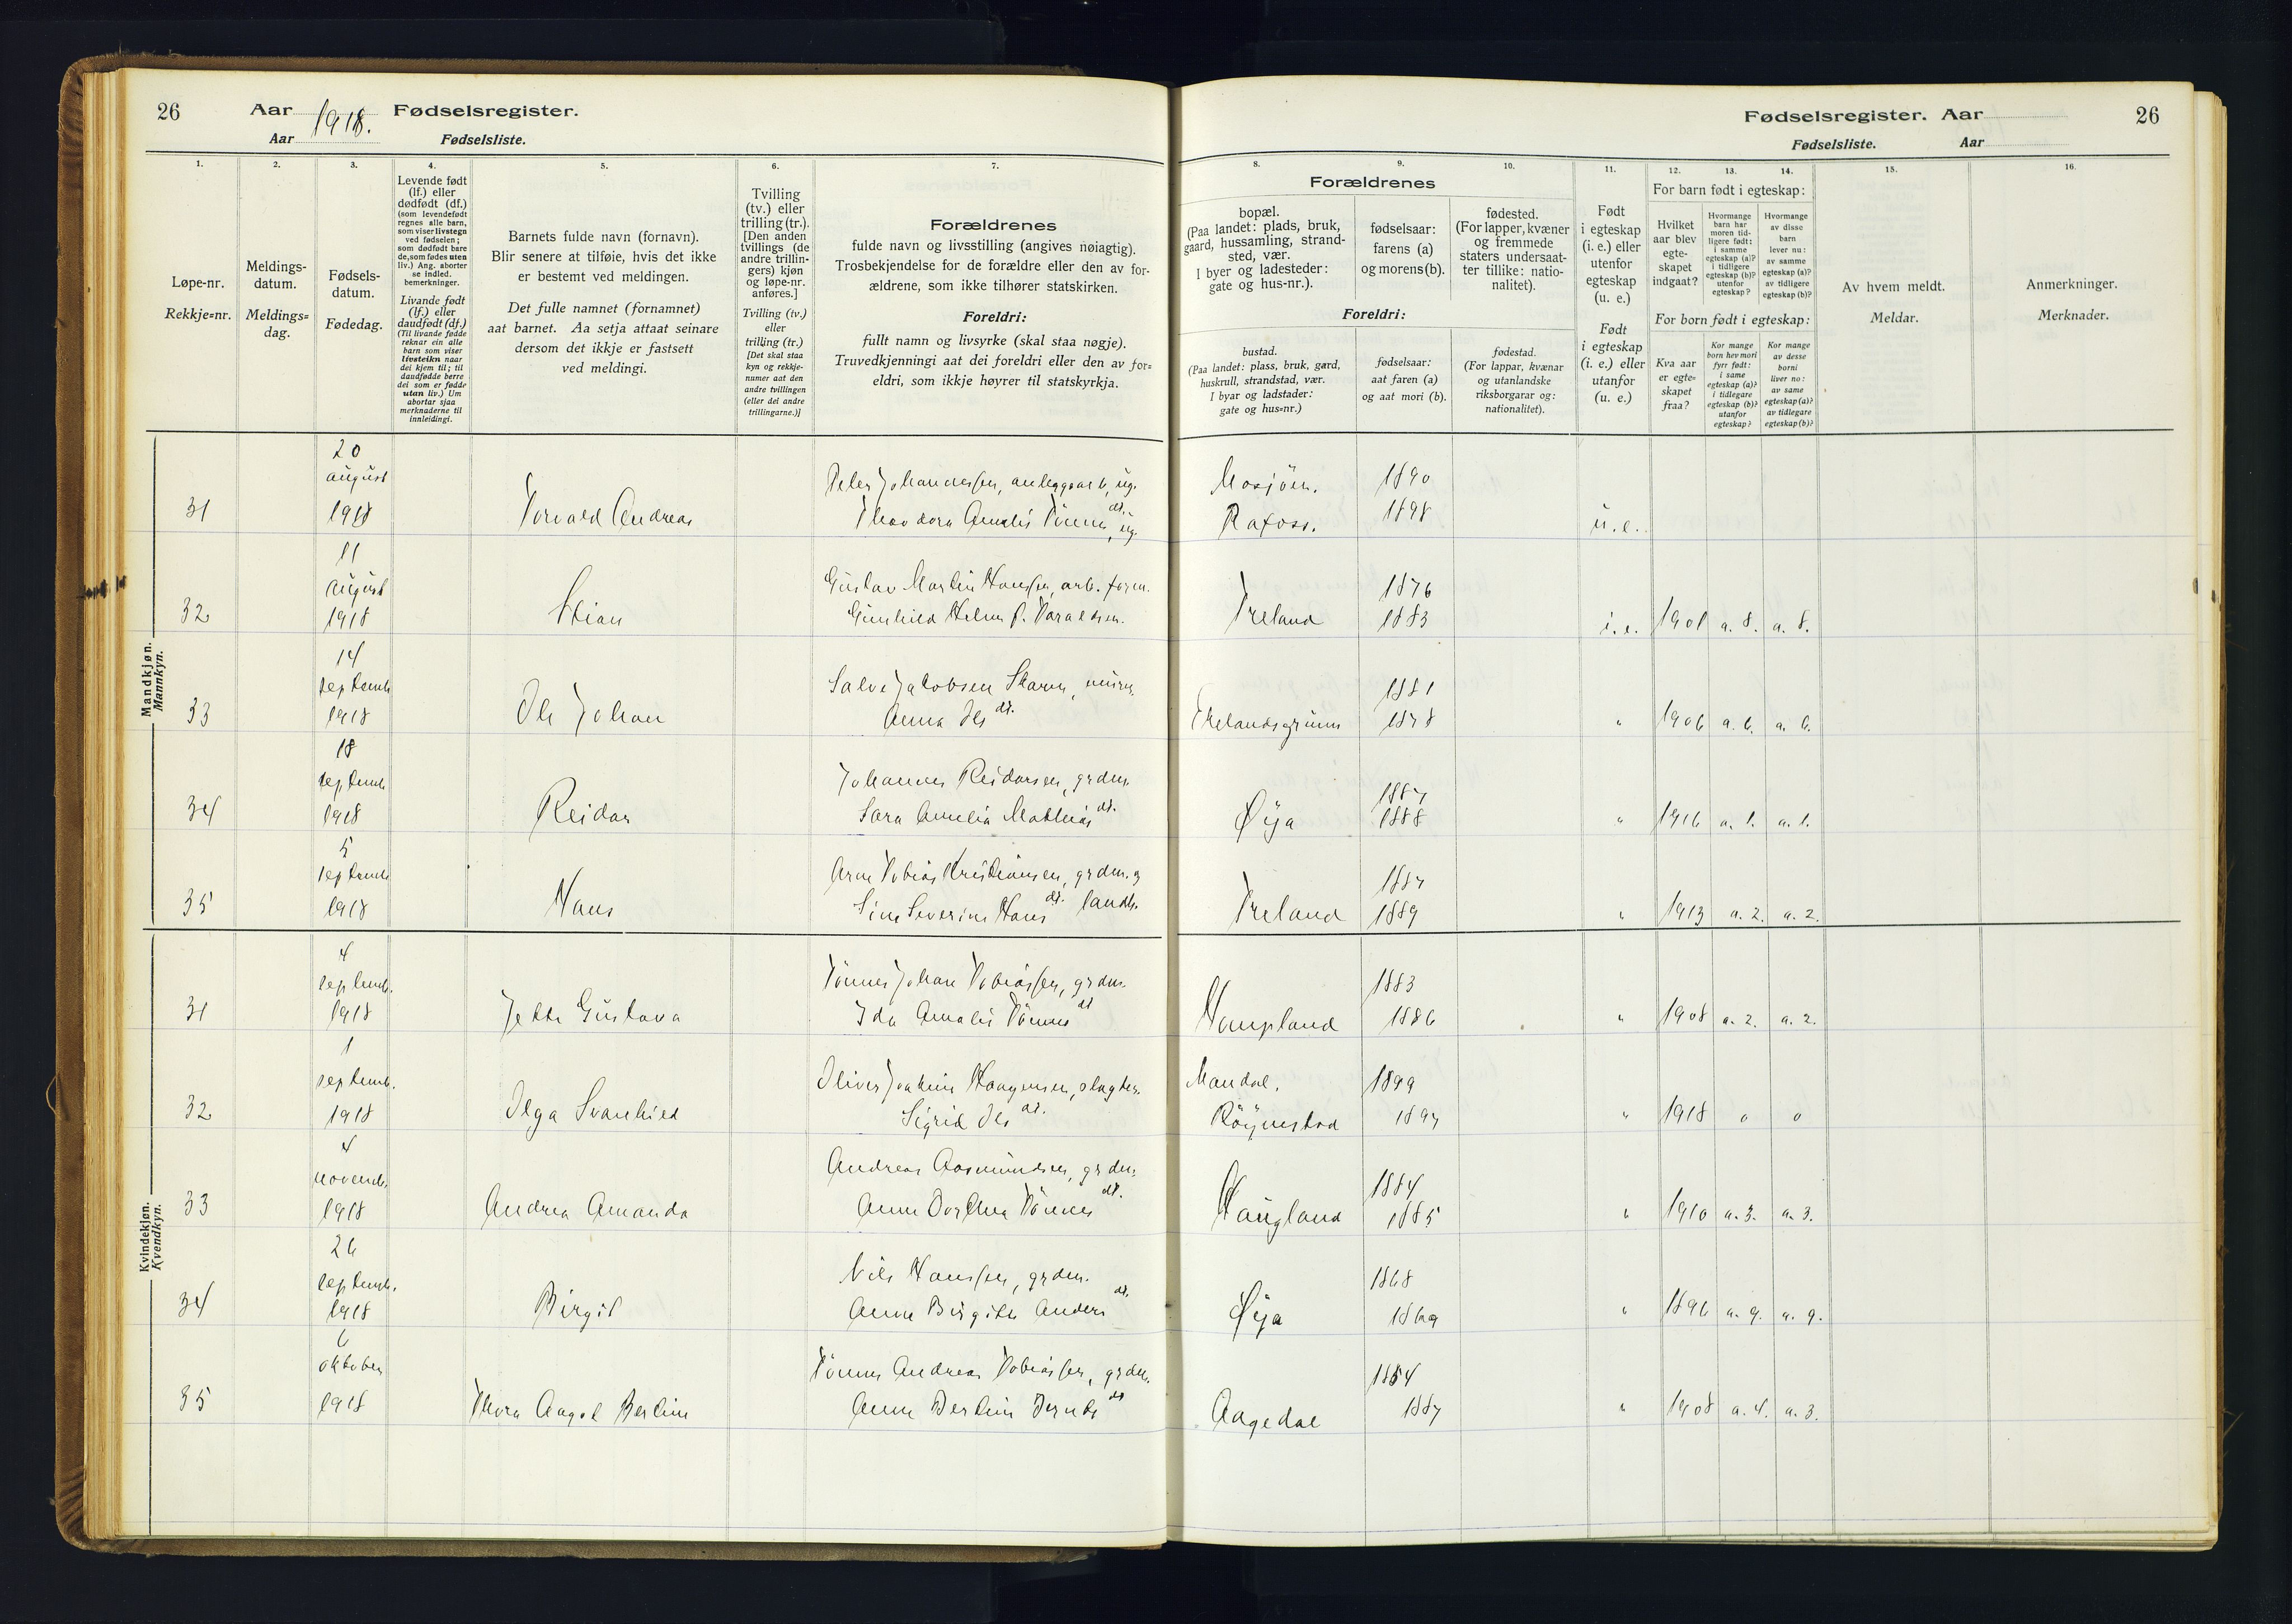 26 Aar 1918. Fødselsregister.
Aar Fødselsliste.
1.
2.
3.
4.
5.
6.
7.
Løpe-nr.
Rekkje=nr.
Meldings-
datum.
Meldings=
dag.
Fødsels-
datum.
Fødedag.
Levende født
(lf.) eller
dødfødt (df.)
(som levendefødt
regnes alle barn,
som viser livstegn
ved fødselen;
som dødfødt bare
de, som fødes uten
liv.) Ang. aborter
se indled.
bemerkninger.
Livande født
(lf.) eller
daudfødt (df.)
(Til livande fødde
reknar ein alle
barn som viser
livsteikn naar
dei kjem til; til
daudfødde berre
dei som er fødde
utan liv.) Um
abortar sjaa
merknaderne til
innleidingi.
Barnets fulde navn (fornavn).
Blir senere at tilføie, hvis det ikke
er bestemt ved meldingen.
Det fulle namnet (fornamnet)
aat barnet. Aa setja attaat seinare
dersom det ikkje er fastsett
ved meldingi.
Tvilling
(tv.) eller
trilling (tr.).
[Den anden
tvillings (de
andre trillin-
gers) kjøn
og løpe-nr.
anføres.]
Tvilling (tv.)
eller
trilling (tr.)
[Det skal staa
kyn og rekkje-
numer aat den
andre tvillingen
(eller dei andre
trillingarne.)]
Forældrenes
fulde navn og livsstilling (angives nøiagtig).
Trosbekjendelse for de forældre eller den av for-
ældrene, som ikke tilhører statskirken.
Foreldri:
fullt namn og livsyrke (skal staa nøgje).
Truvedkjenningi aat dei foreldri eller den av for=
eldri, som ikkje høyrer til statskyrkja.
Fødselsregister. Aar 26
Fødselsliste. Aar
8.
9.
10.
11.
12.
13.
14.
15.
16.
Forældrenes
bopæl.
(Paa landet: plads, bruk,
gaard, hussamling, strand-
sted, vær.
I byer og ladesteder:
gate og hus-nr.).
fødselsaar:
farens (a)
og morens (b).
fødested.
(For lapper, kvæner
og fremmede
staters undersaat-
ter tillike: natio-
nalitet).
Foreldri:
bustad.
(Paa landet: plass, bruk, gard,
huskrull, strandstad, vær.
I byar og ladstader:
gate og hus=nr.)
fødselsaar:
aat faren (a)
og aat mori (b).
fødestad.
(For lappar, kvænar
og utanlandske
riksborgarar og:
nationalitet).
Født
i egteskap
(i. e.) eller
utenfor
egteskap
(u. e.)
Født
i egteskap
(i. e.) eller
utanfor
egteskap
(u. e.)
For barn født i egteskap:
Hvilket
aar blev
egte-
skapet
indgaat?
Hvormange
barn har
moren tid-
ligere født:
i samme
egteskap (a)?
i tidligere
egteskap (b)?
utenfor
egteskap?
Hvormange
av disse
barn
lever nu:
av samme
egteskap (a)?
av tidligere
egteskap (b)?
For born født i egteskap:
Kva aar
er egte=
skapet
fraa?
Kor mange
born hev mori
fyrr født:
i same
egteskap (a)?
i tidlegare
egteskap (b)?
utanfor
egteskap?
Kor mange
av desse
borni
liver no:
av same
egteskap (a)?
av tidlegare
egteskap (b)?
Av hvem meldt.
Meldar.
Anmerkninger.
Merknader.
Mandkjøn.
Mannkyn.
31 20 august 1918 Torvald Andreas Peder Johannessen, anleggsarb, ug. Mosjöen. 1890
Theodora Amalie Tönnes dt., ug. Rafoss. 1898 u.e.
32 11 august 1918 Stian Gustav Martin Hansen, arb. form. 1876
Gunhild Helene f. Haraldsen. Treland 1883 i.e. 1901 a. 8. a. 8.
33 14 septemb 1918 Ole Johan Salve Jakobsen 1881
Anna Ols dt. Trelandsgrunn 1878 " 1906 a. 6. a. 6.
34 18 septemb 1918 Reidar Johannes Reidarsen, grdm. 1887
Sara Amelia Mathias dt. Øya 1888 " 1916 a. 1. a. 1.
35 5 septemb 1918 Hans Arne Tobias Kristiansen, grdm. og landh. 1887
Sine Severine Hans dt. Treland 1889 " 1913 a. 2. a. 2.
Kvindekjøn.
Kvendkyn.
31 4 septemb. 1918 Jette Gustava Tönnes Johan Tobiassen, grdm. 1883
Ida Amalie Tönnes dt Haugland 1886 " 1908 a. 2. a. 2.
32 1 septemb. 1918 Olga Svanhild Oliver Joakim Haagensen, slagter. Mandal. 1899
Sigrid Ols dt. Röynestad 1897 " 1918 0 0
33 4 novemb. 1918 Andrea Amanda Andreas Aasmundsen, grdm. 1884
Anne Dorthea Tönnes dt. Haugland 1885 " 1910 a. 3. a. 3.
34 26 septemb. 1918 Birgit Nils Hanssen, grdm. 1868
Anne Birgitte Anders dt. Øya 1869 " 1896 a. 9. a. 9.
35 6 oktober 1918 Thora Aagot Bertine Tönnes Andreas Tobiassen, grdm. 1884
Anne Bertine Bernts dt Aagedal 1887 " 1908 a. 4. a. 3.